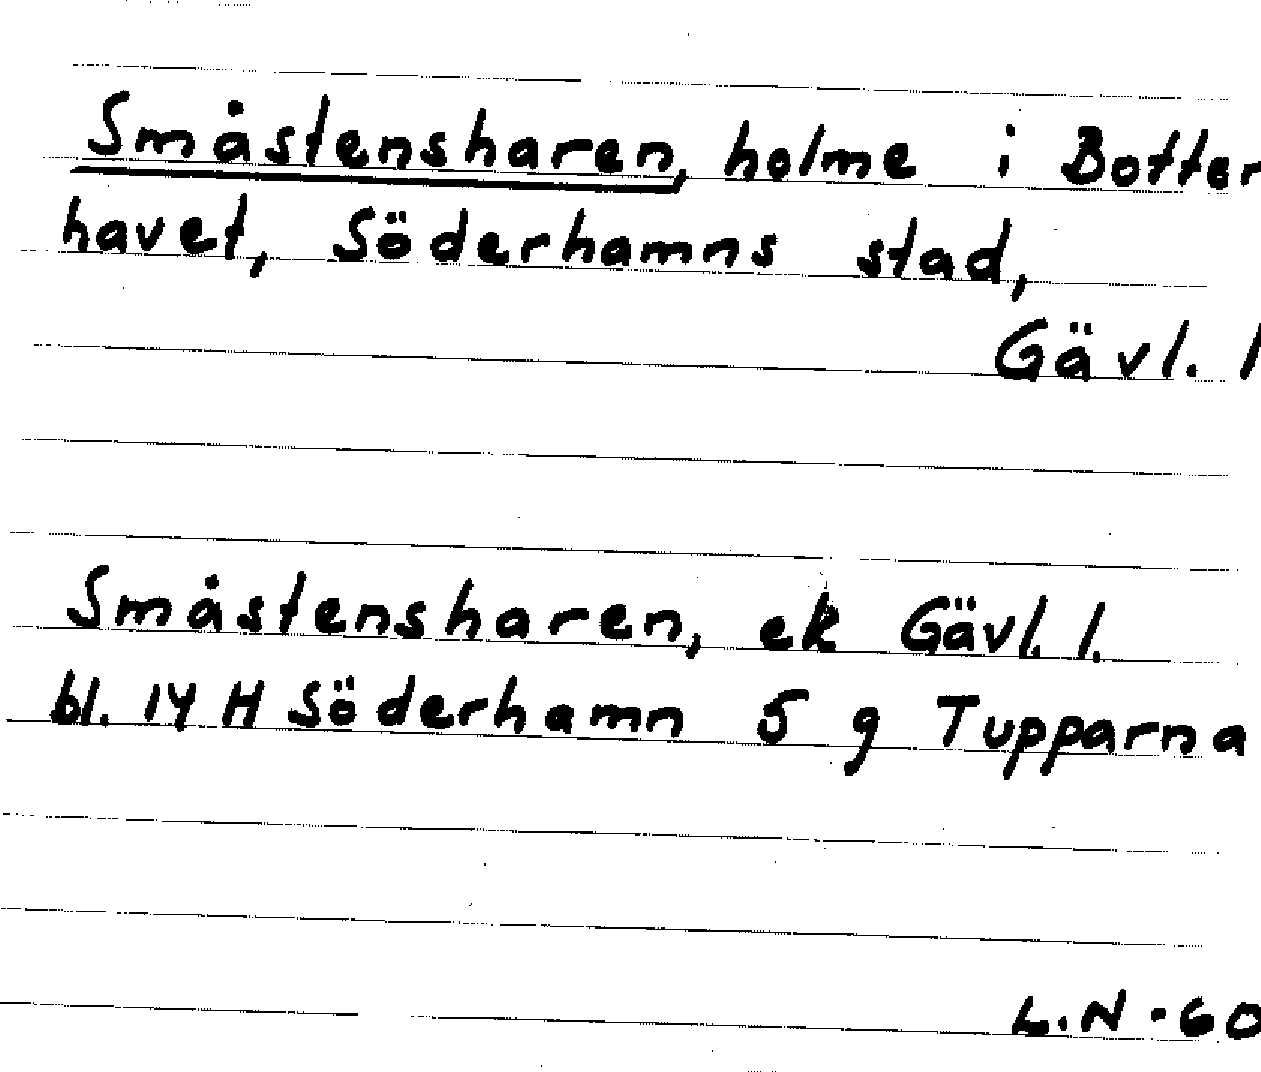 Småstensharen, holme i Botten
havet, Söderhamns stad,
Gävl. l
Småstensharen, ek Gävl. l.
bl. 14 H Söderhamn 5 g Tupparna
L.N -60